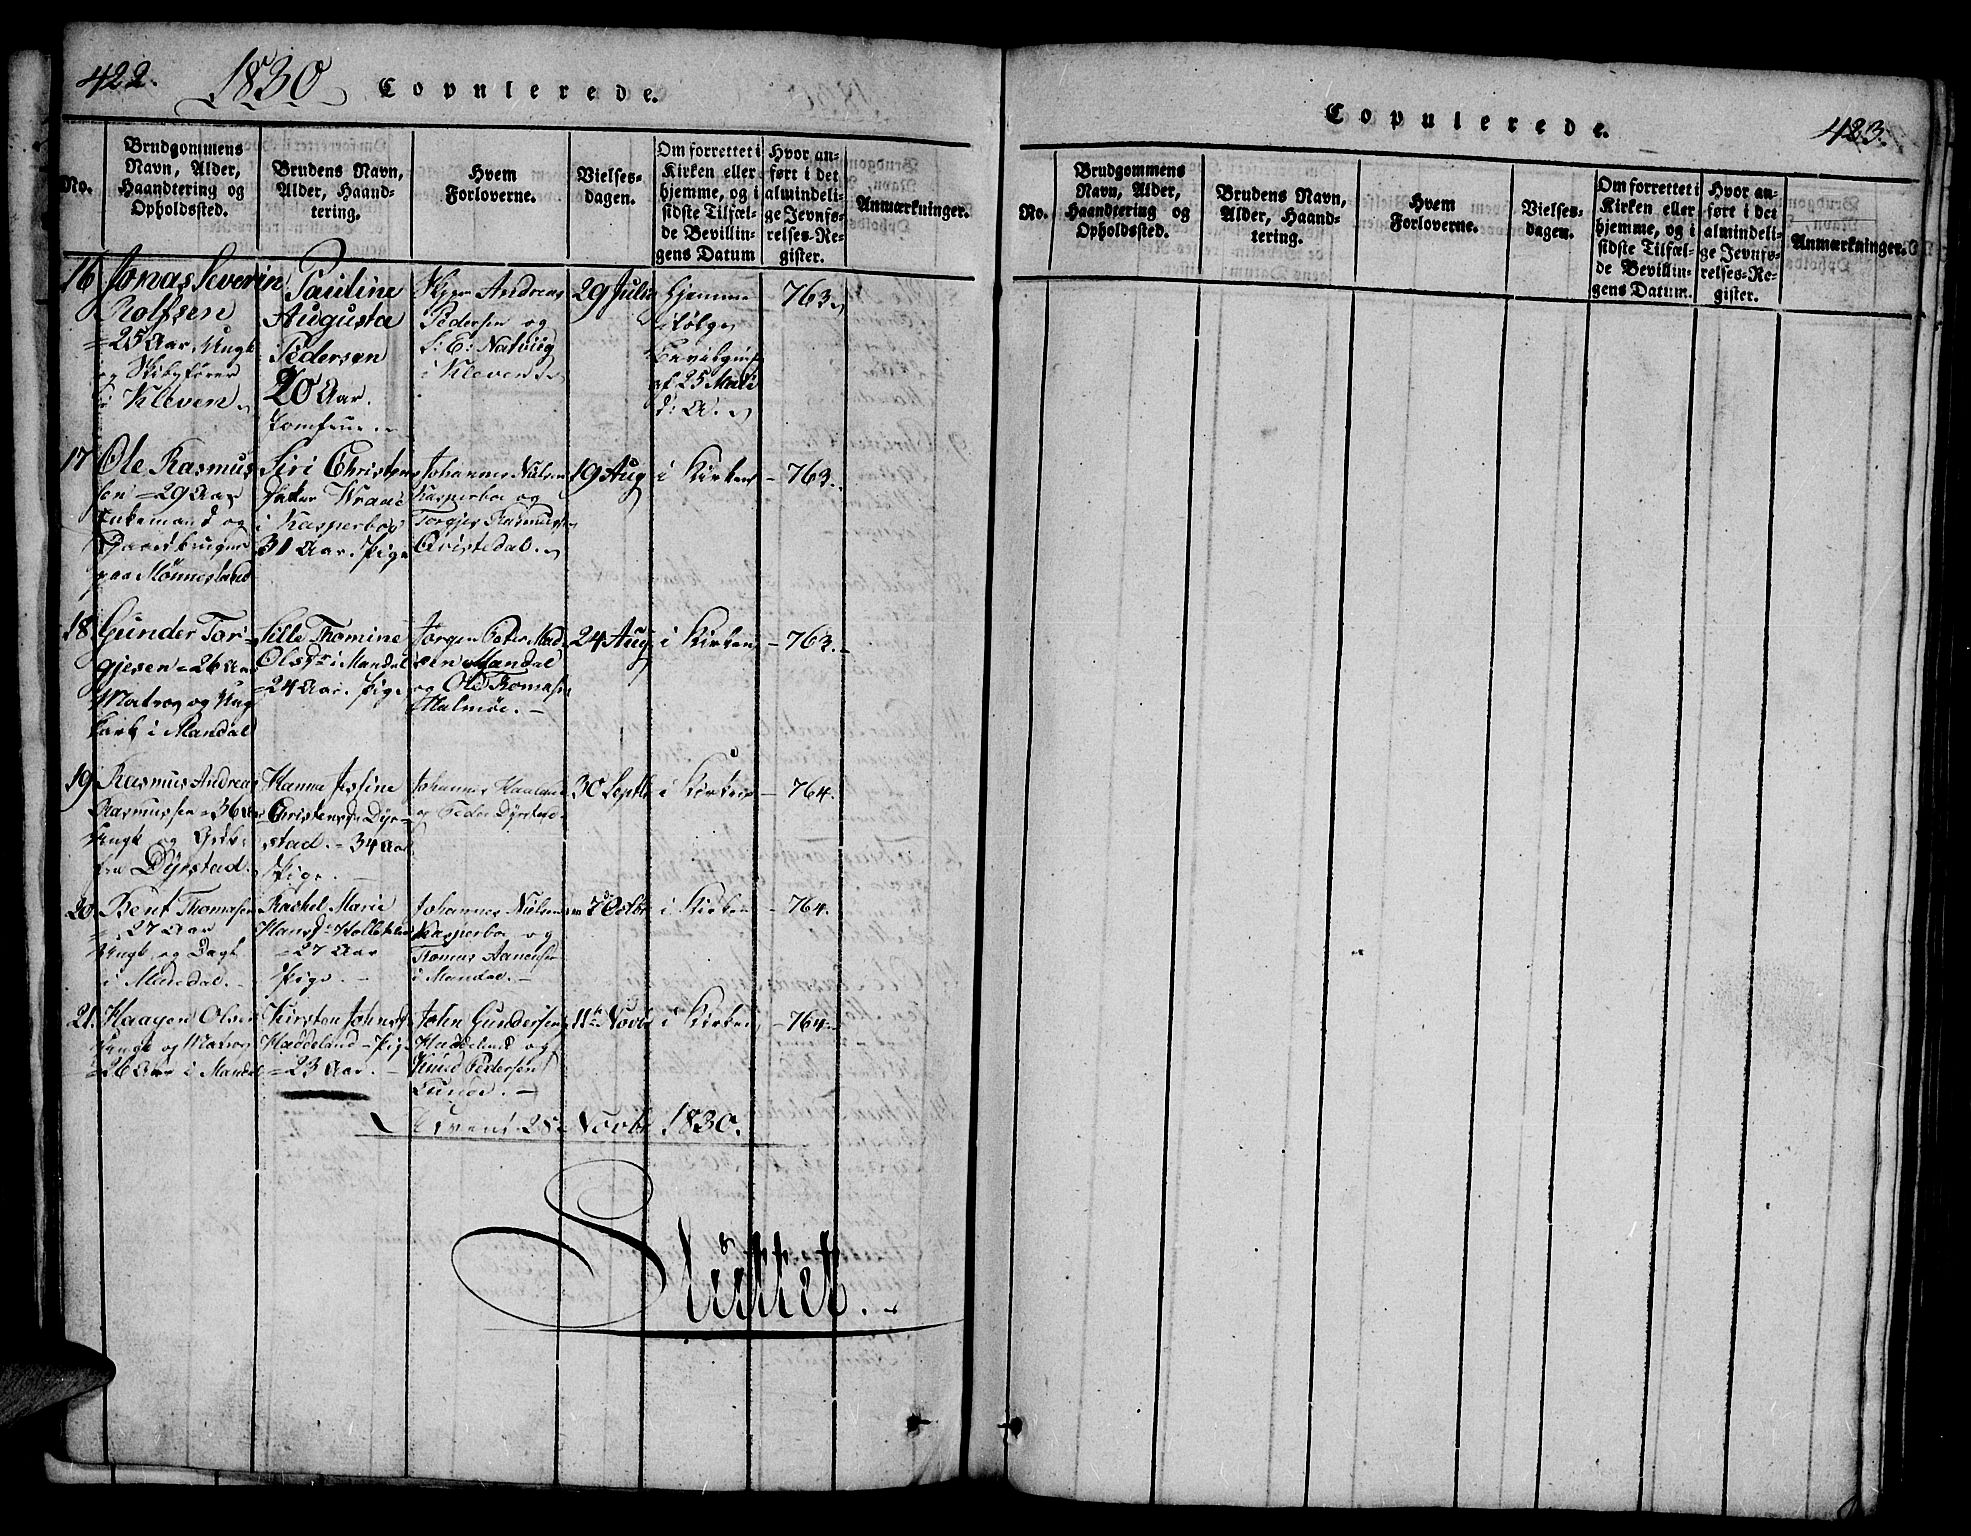 422. 1830 Copulerede.
No.
Brudgommens
Navn, Alder,
Haandtering og
Opholdssted.
Brudens Navn,
Alder, Haand-
tering.
Hvem
Forloverne.
Vielses-
dagen.
Om forrettet i
Kirken eller
hjemme, og i
sidste Tilfæl-
de Bevillin-
gens Datum
Hvor an-
ført i det
almindeli-
ge Jevnfø-
relses-Re-
gister.
Anmærkninger.
16
Jonas Severin
Rolfsen
25 Aar, Ungk
og Skibsfører
i Kleven
Pauline
Augusta
Pedersen
20 Aar.
Jomfrue
Skipr Andreas
Pedersen og
S: E: Natvig
i Kleven
29 Julii
Hjemme
ifølge
af 25 Mai
d: A.
- 763.
17
Ole Rasmus
sen = 29 Aar
Enkemand og
Gaardbruger
paa Mönnesland
Siri Christens
datter Waage
i Kasperboe
31 Aar. Pige
Johannes Nielsen
Kasperboe og
Torgjer Rasmussen
Qvistedal.
19 Aug
i Kirken
- 763.
18.
Gunder Tor-
gjesen = 26 Aar
Matros og Ung
karl i Mandal
Sille Thomine
Olsdr i Mandal
= 24 Aar. Pige
Jörgen Peter Mad
sen Mandal
og Ole Thomasen
Malmöe. -
24 Aug
i Kirken
- 763.
19.
Rasmus Andreas
Rasmussen = 36 Aar
Ungk og
fra Dyrstad.
Hanna Jesine
Christensdr Dyr-
stad. - 34 Aar
Pige. -
Johannes Haaland
og Peder Dyrstad.
30 Septbr
i Kirken
- 764.
20.
Bent Thomasen
= 27 Aar
Ungk og
i Mandal. -
Rachel Marie
Hansdr
= 27 Aar
Pige. -
Johannes Nielsen
Kasperboe og
Thomas Aanensen
i Mandal. -
7 Octbr
i Kirken
- 764.
21.
Haagen Olsen
Ungk og Matros
= 26 Aar i Mandal
Kirsten Johnsdr
Haddeland - Pige
= 23 Aar. -
John Gundersen
Haddeland og
Knud Pedersen
Lunde. -
11te Novbr
i Kirken
- 764.
28 Novbr 1830.
Sluttet. -
Copulerede. 423.
No.
Brudgommens
Navn, Alder,
Haandtering og
Opholdssted.
Brudens Navn,
Alder, Haand-
tering.
Hvem
Forloverne.
Vielses-
dagen.
Om forrettet i
Kirken eller
hjemme, og i
sidste Tilfæl-
de Bevillin-
gens Datum.
Hvor an-
ført i det
almindeli-
ge Jevnfø-
relses-Re-
gister.
Anmærkninger.